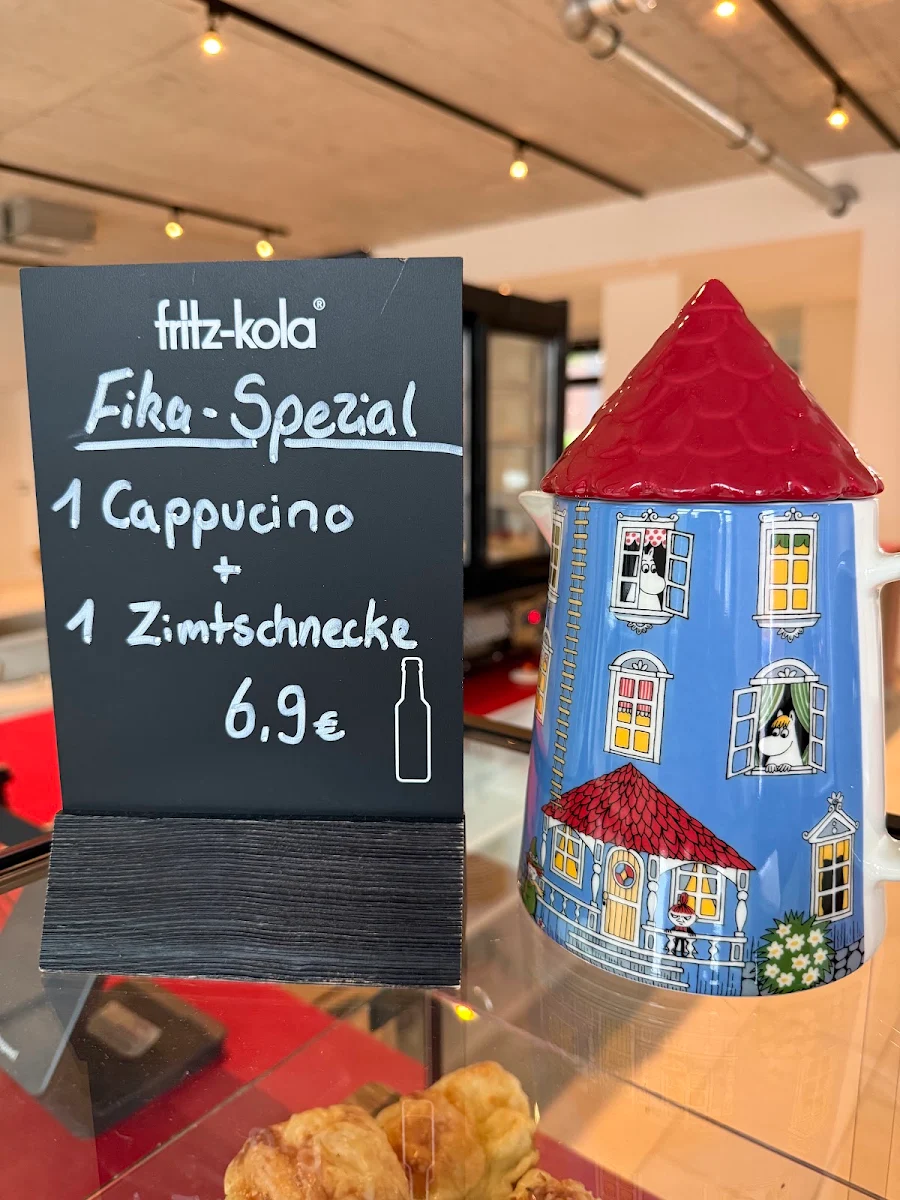 fritz-kola®
Fika-Spezial
1 Cappucino
+
1 Zimtschnecke
6,9€